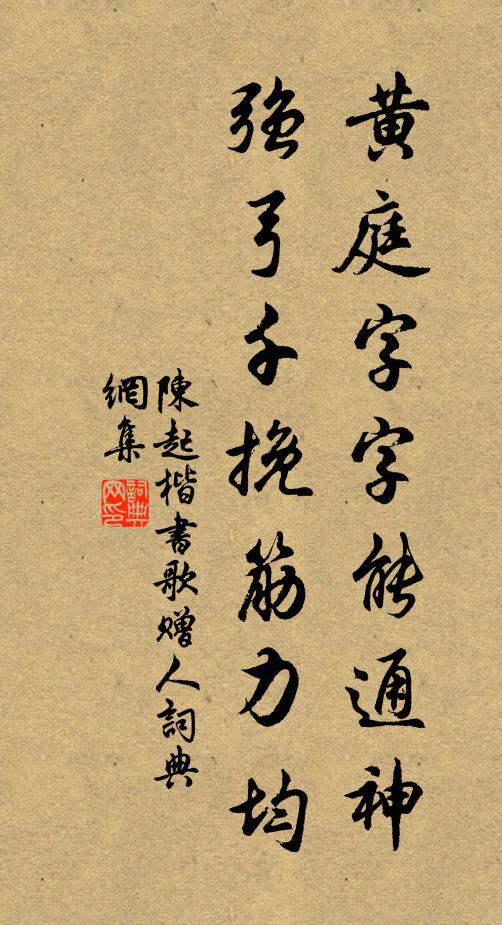 黃庭字字能通神
强弓千挽筋力均
陳起楷書歌贈人詞典
網集
詞典
网印